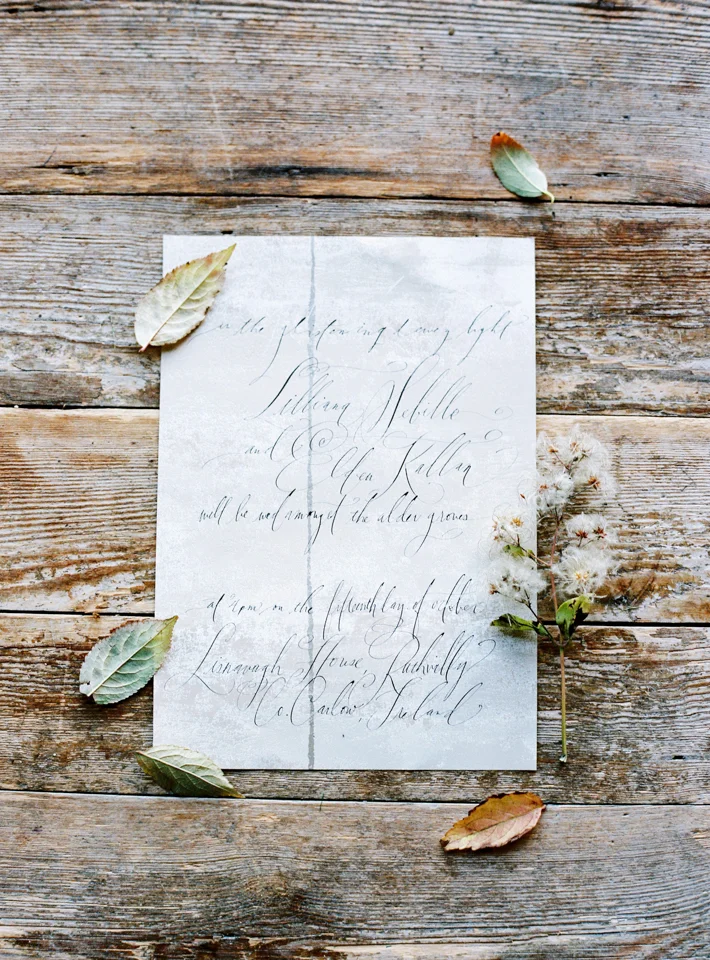 in the gloaming day light
Lilliana Nebille
and Elden Kallan
will be wed amongst the alder groves
at 2pm on the fifteenth day of october
Lisnavagh House, Rathvilly
Co. Carlow, Ireland